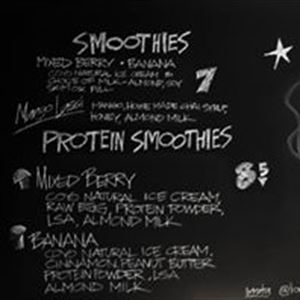 SMOOTHIES
MIXED BERRY • BANANA
COYO NATURAL ICE CREAM &
CHOICE OF MILK - ALMOND, SOY
SKIM OR FULL
7
Mango Lassi MANGO, HOME MADE CHAI SYRUP,
HONEY, ALMOND MILK
PROTEIN SMOOTHIES
MIXED BERRY 8.5
COYO NATURAL ICE CREAM,
RAW EGG, PROTEIN POWDER,
LSA, ALMOND MILK
BANANA
COYO NATURAL ICE CREAM,
CINNAMON, PEANUT BUTTER
PROTEIN POWDER, LSA
ALMOND MILK